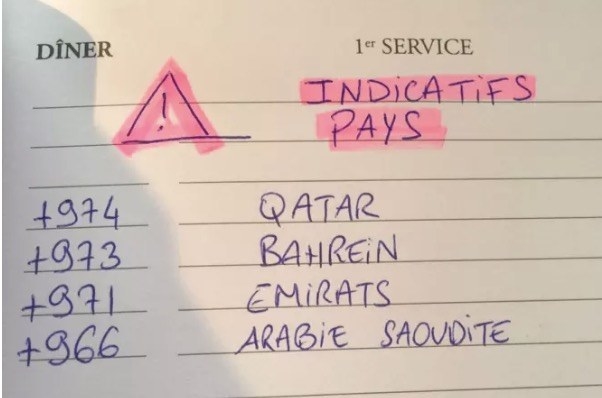 DÎNER 1er SERVICE
! INDICATIFS
PAYS
+974 QATAR
+973 BAHREIN
+971 EMIRATS
+966 ARABIE SAOUDITE